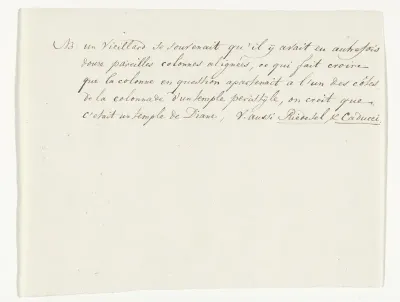 NB un vieillard se souvenait qu'il y avait eu autrefois
douze pareilles colonnes alignées, ce qui fait croire
que la colonne en question apartenait a l'un des côtés
de la colonnade d'un temple peristyle, on croit que
c'etait un temple de Diane, V. aussi Riedesel, & Carducci